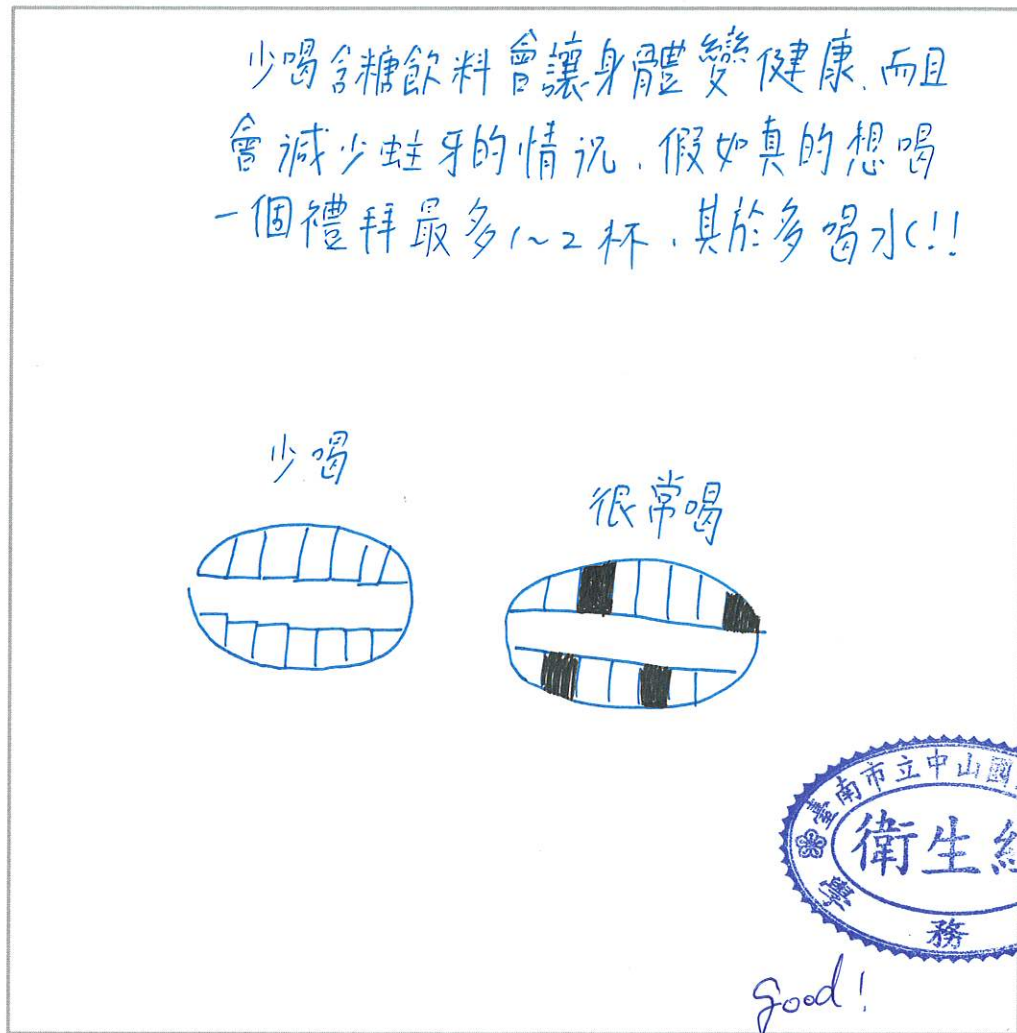 少喝含糖飲料會讓身體變健康,而且
會減少蛀牙的情況,假如真的想喝
一個禮拜最多1~2杯,其於多喝水(!!
少喝
很常喝
臺南市立中山國
衛生
學務
good!